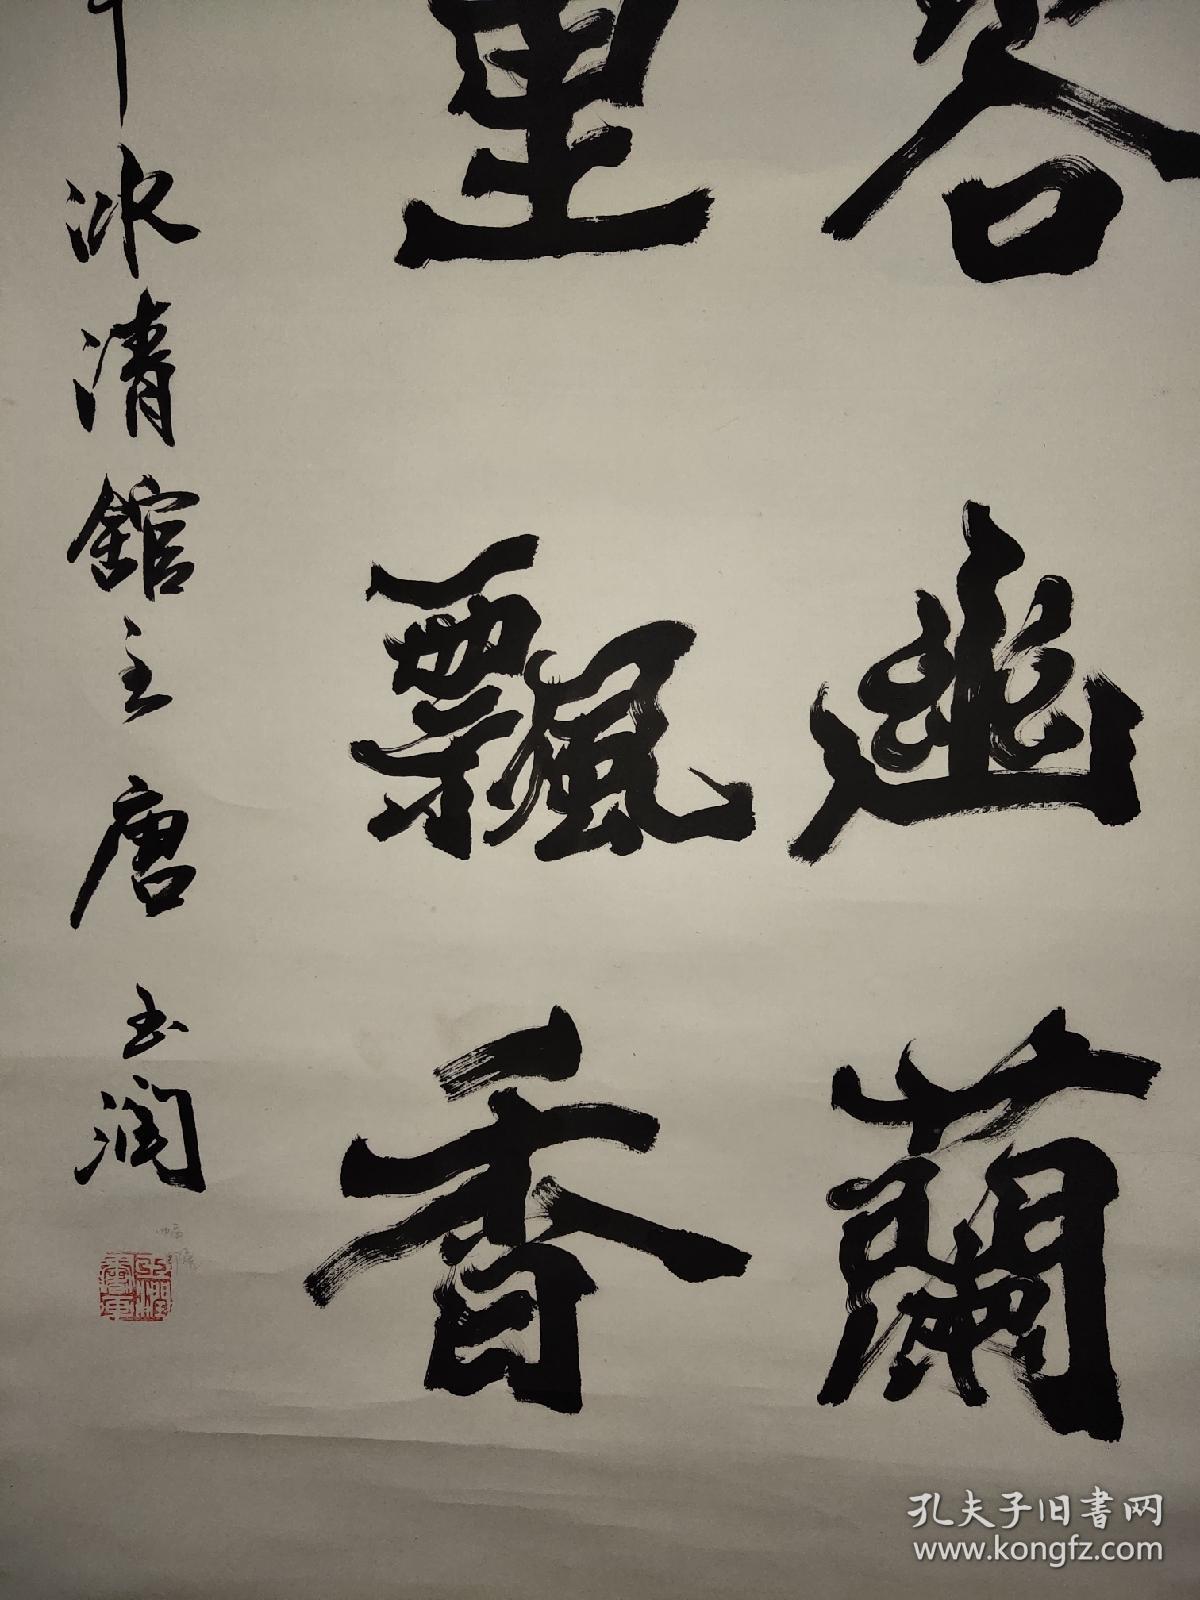 谷幽蘭
里飄香
冰清館主唐玉潤
孔夫子旧书网
www.kongfz.com